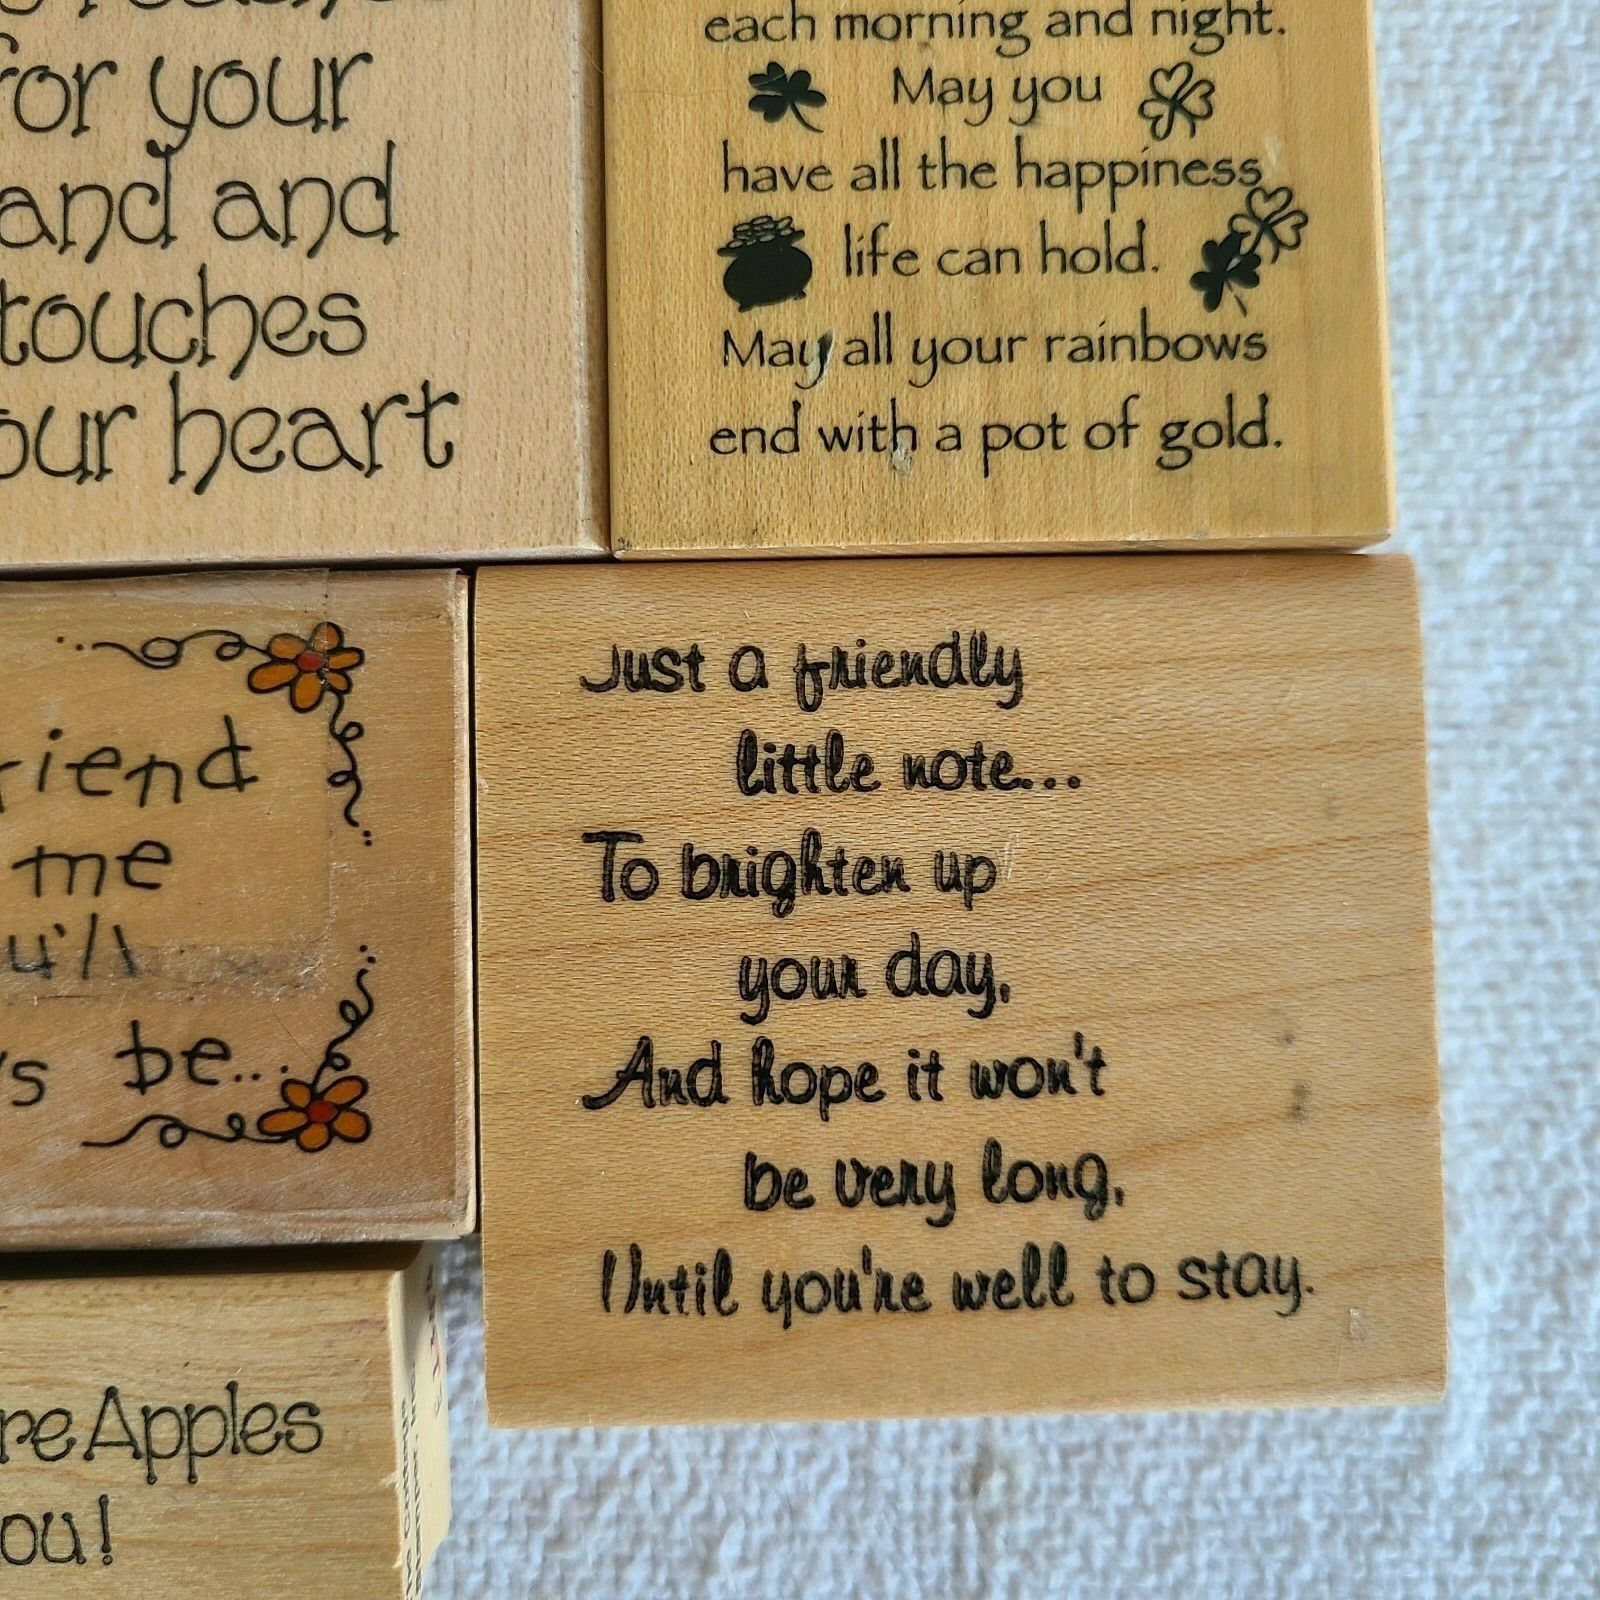 for your
and and
touches
our heart
each morning and night.
May you
have all the happiness
life can hold.
May all your rainbows
end with a pot of gold.
riend
me
u'll
s be...
Just a friendly
little note...
To brighten up
your day,
And hope it won't
be very long,
Until you're well to stay.
re Apples
ou!